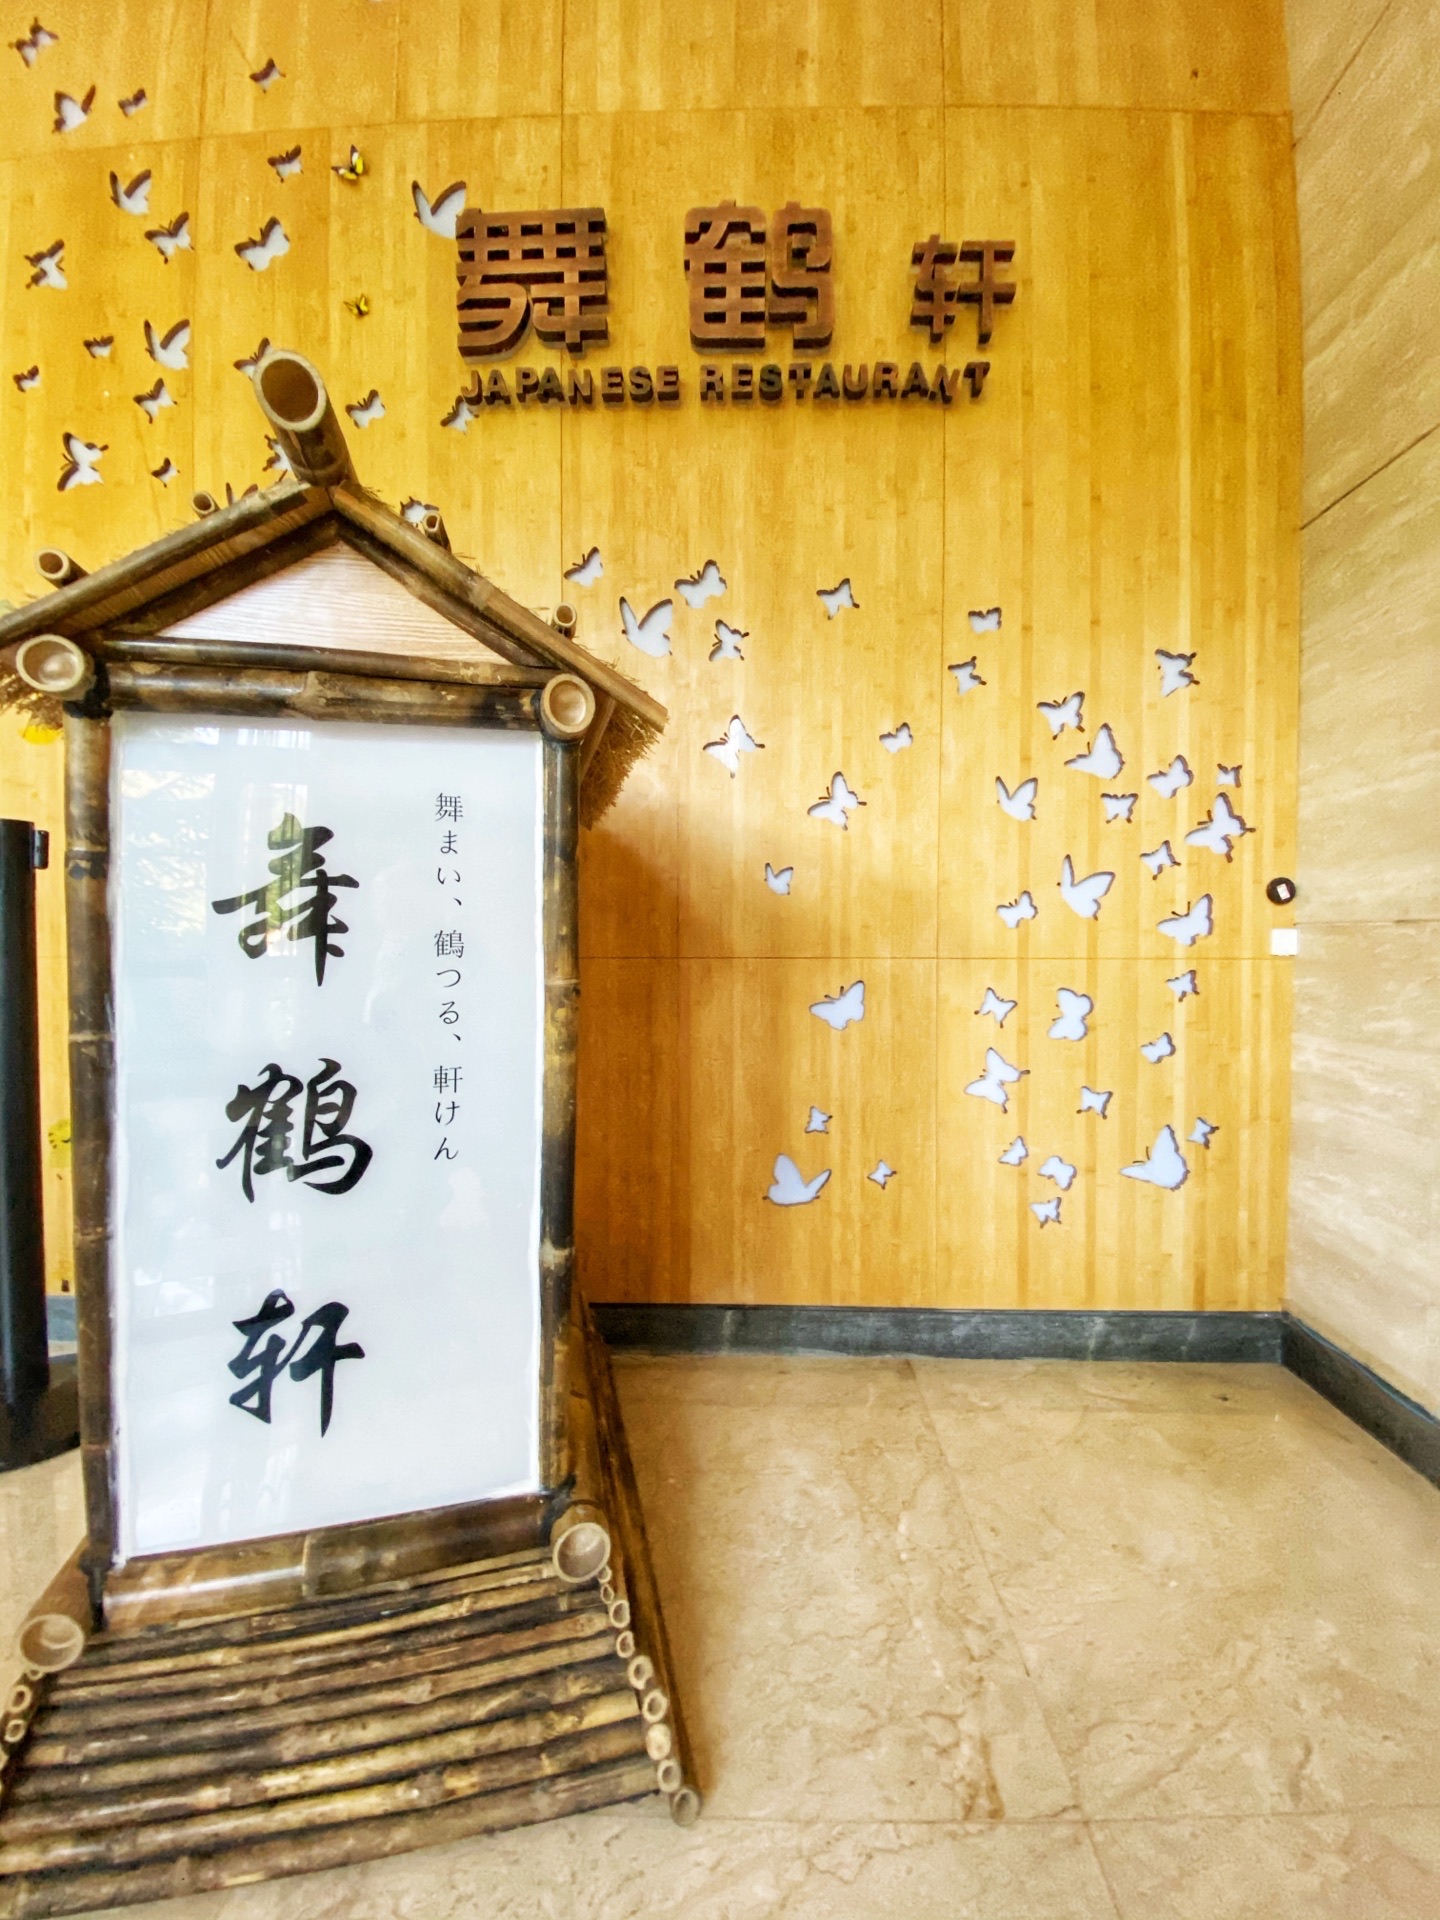 舞鹤轩
JAPANESE RESTAURANT
舞まい、鶴つる、軒けん
舞鶴轩